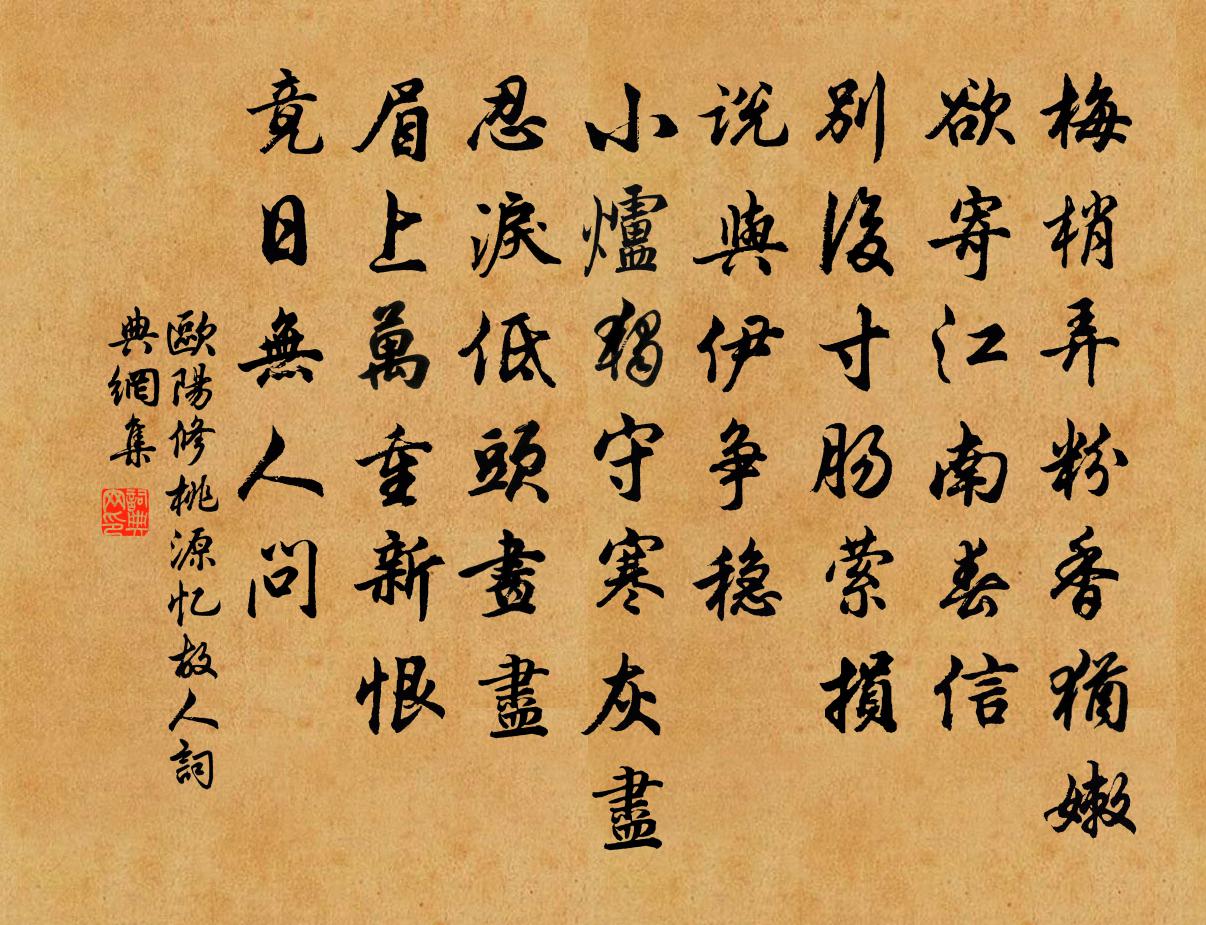 梅梢弄粉香猶嫩
欲寄江南春信
別後寸腸縈損
說與伊爭穩
小爐獨守寒灰盡
忍淚低頭畫盡
眉上萬重新恨
竟日無人問
歐陽修桃源忆故人詞
典網集
詞典
网印